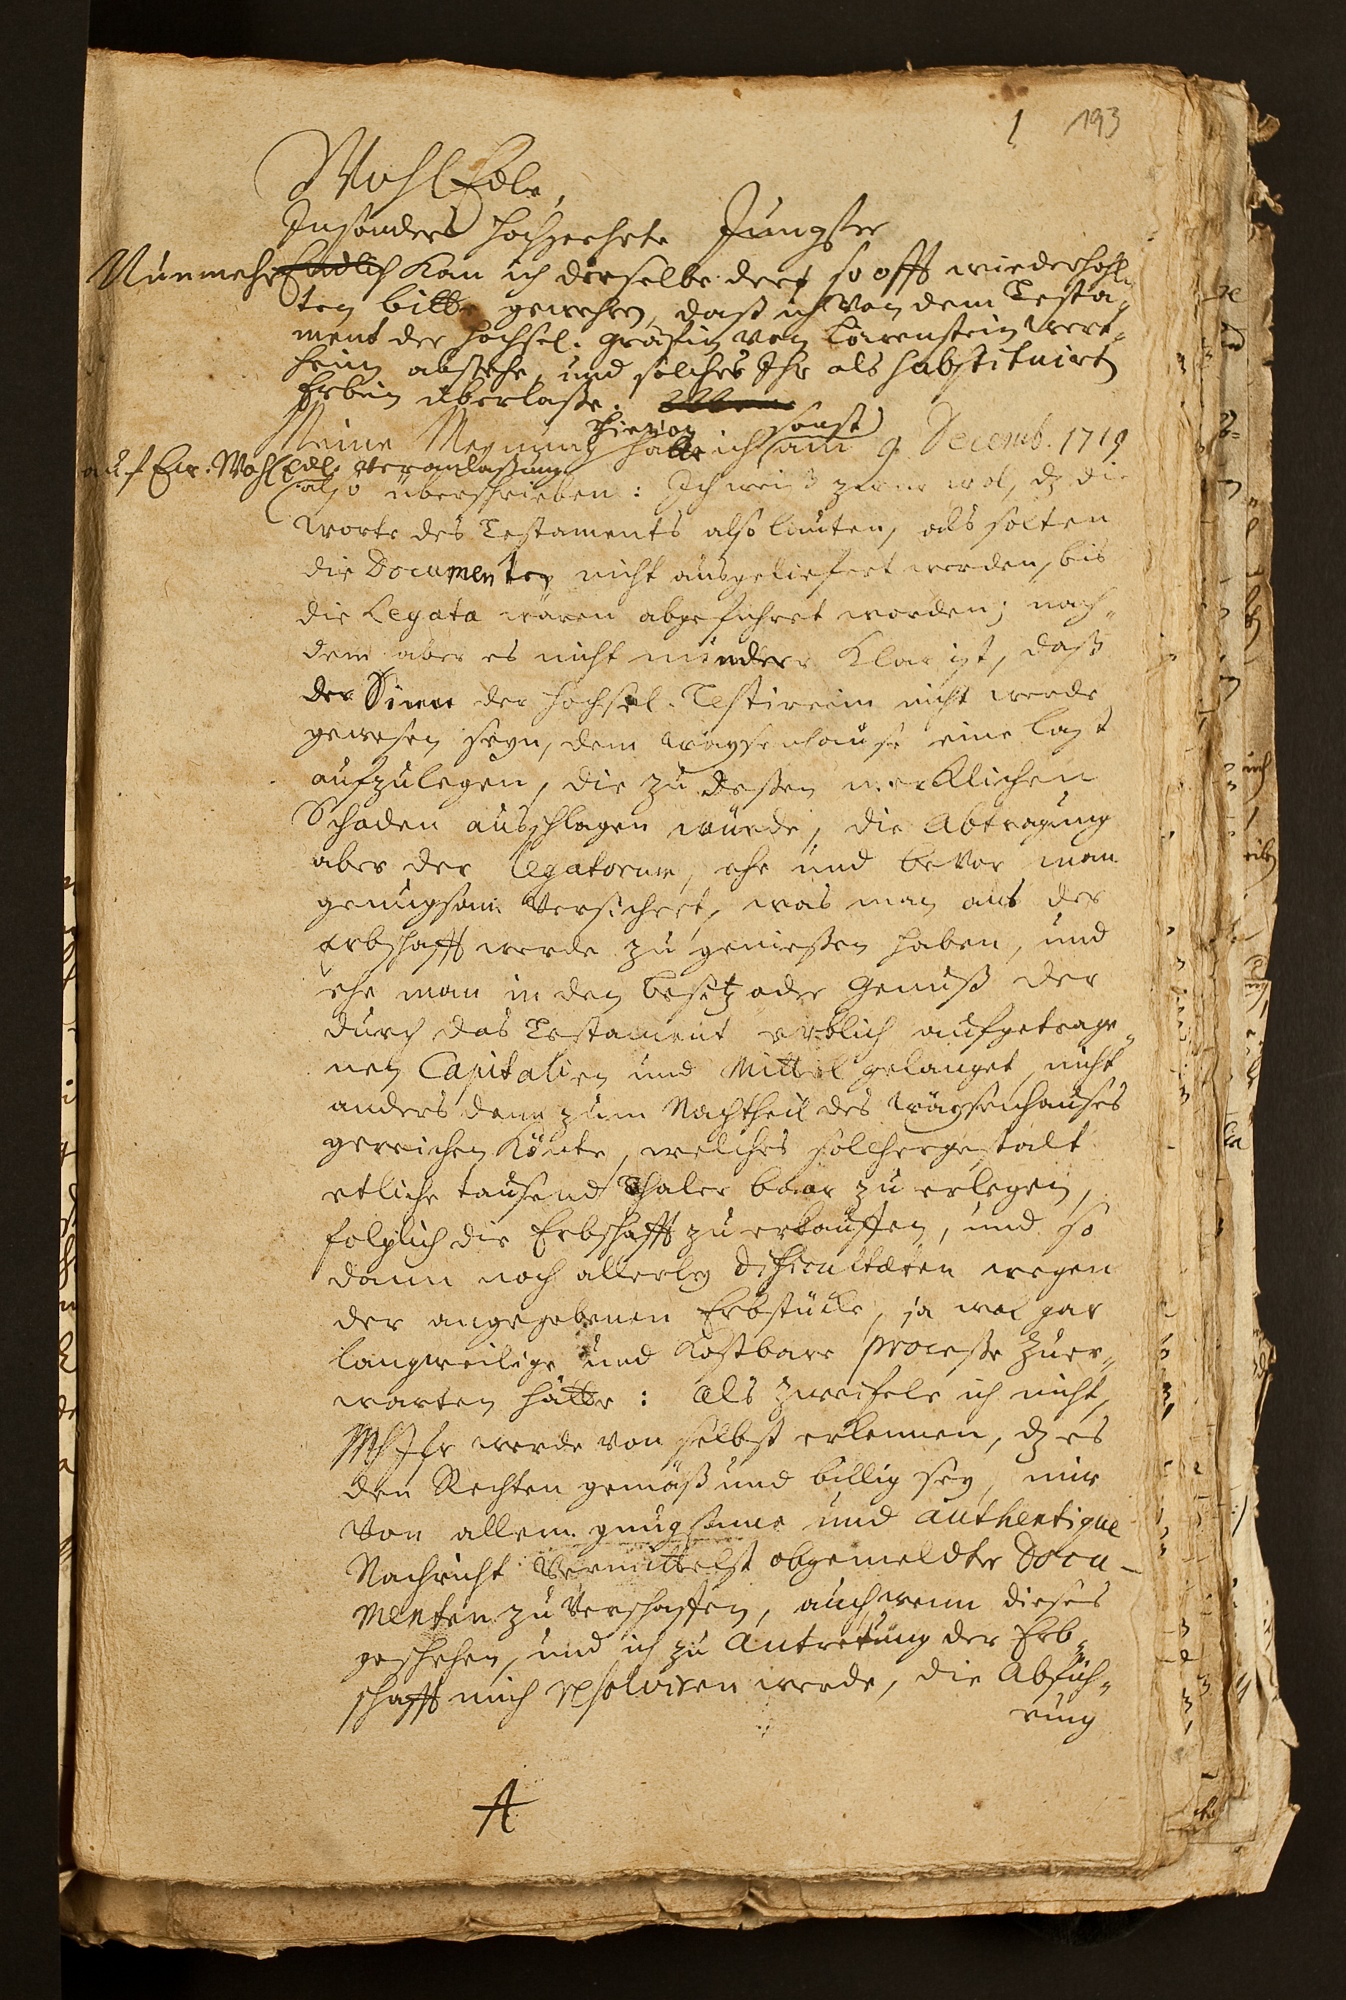 1 193
WohlEdle,
Insonders hochgeehrte Jungfer
Nunmehr Endlich kan ich derselben dero so offt wiederhohl-
ten bitte gewehren, daß ich von dem Testa-
ment der hochsel. Gräfin von Löwenstein Wert-
heim abstehe, und solches Ihr als substituirten
Erbin überlaße.
Meine Meynung hiervon hatte ich sonst am 9 Decemb. 1719
auf Ew. WohlEdl. Veranlaßung
also überschrieben: Ich weiß zwar wol, dz die
worte des Testaments also lauten, als solten
die Documenten nicht ausgeliefert werden, bis
die Legata wären abgeführet worden; nach-
dem aber es nicht minder klar ist, daß
der Sinn der hochsel. Testirerin nicht werde
gewesen seyn, dem Wäysenhause eine last
aufzulegen, die zu deßen mercklichen
Schaden ausschlagen würde, die Abtragung
aber der legatorum, ehe und bevor man
genugsam versichert, was man aus der
Erbschafft werde zu genießen haben, und
ehe man in den besitz oder Genuß der
durch das Testament erblich aufgetrage-
nen Capitalien und Mittel gelanget, nicht
anders denn zum Nachtheil des Wäysenhauses
gereichen könte, welches solchergestalt
etliche tausend Thaler baar zu erlegen,
folglich die Erbschafft zu erkauffen, und so
dann noch allerley Difficultæten wegen
der angegebenen Erbstücke, ja wol gar
langweilige und kostbare Processe zu er-
warten hätte: Als zweifele ich nicht,
MhJfr werde von selbst erkennen, dz es
den Rechten gemäß und billig sey, mir
von allem gnugsame und authentique
Nachricht vermittelst obgemeldter Docu-
menten zu verschaffen, auch wenn dieses
geschehen, und ich zu Antretung der Erb-
schafft mich resolviren werde, die Abfüh-
rung
A